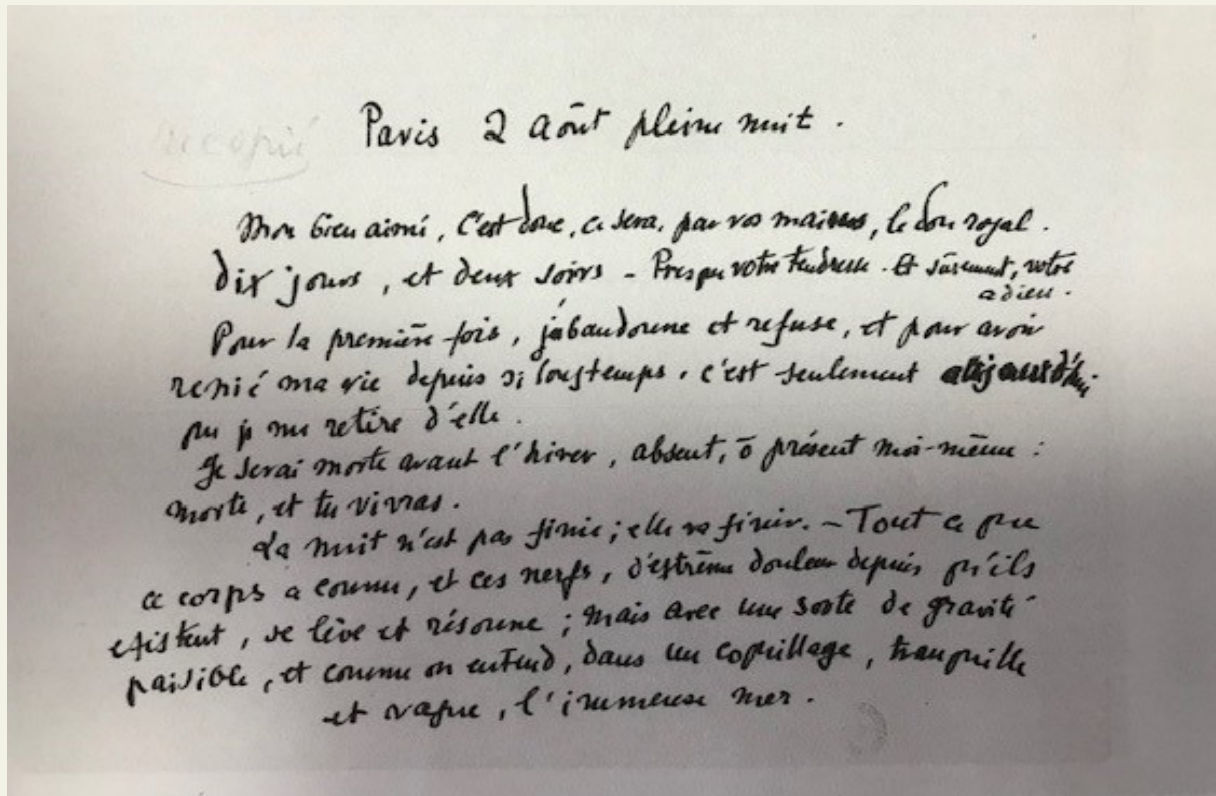 recopié
Paris 2 Août pleine nuit.
Mon bien aimé, C'est donc, ce sera, par vos mains, le don royal.
dix jours, et deux soirs – Presque votre tendresse. Et sûrement, votre
adieu.
Pour la première fois, j'abandonne et refuse, et pour avoir
renié ma vie depuis si longtemps, c'est seulement aujourd'hui
que je me retire d'elle.
Je serai morte avant l'hiver, absent, ô présent moi-même :
morte, et tu vivras.
La nuit n'est pas finie ; elle va finir. – Tout ce que
ce corps a connu, et ces nerfs, d'extrême douleur depuis qu'ils
existent, se lève et résonne ; mais avec une sorte de gravité
paisible, et comme on entend, dans un coquillage, tranquille
et vague, l'immense mer.